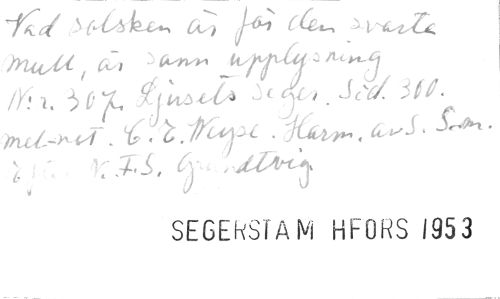 Vad solsken är för den svarta
mull, är sann upplysning
N:r. 307. Ljusets seger. Sid. 300.
mel-not. C. E. Weyse. Harm. av S. S:m.
Efter N. F. S. Grundtvig
SEGERSTAM HFORS 1953